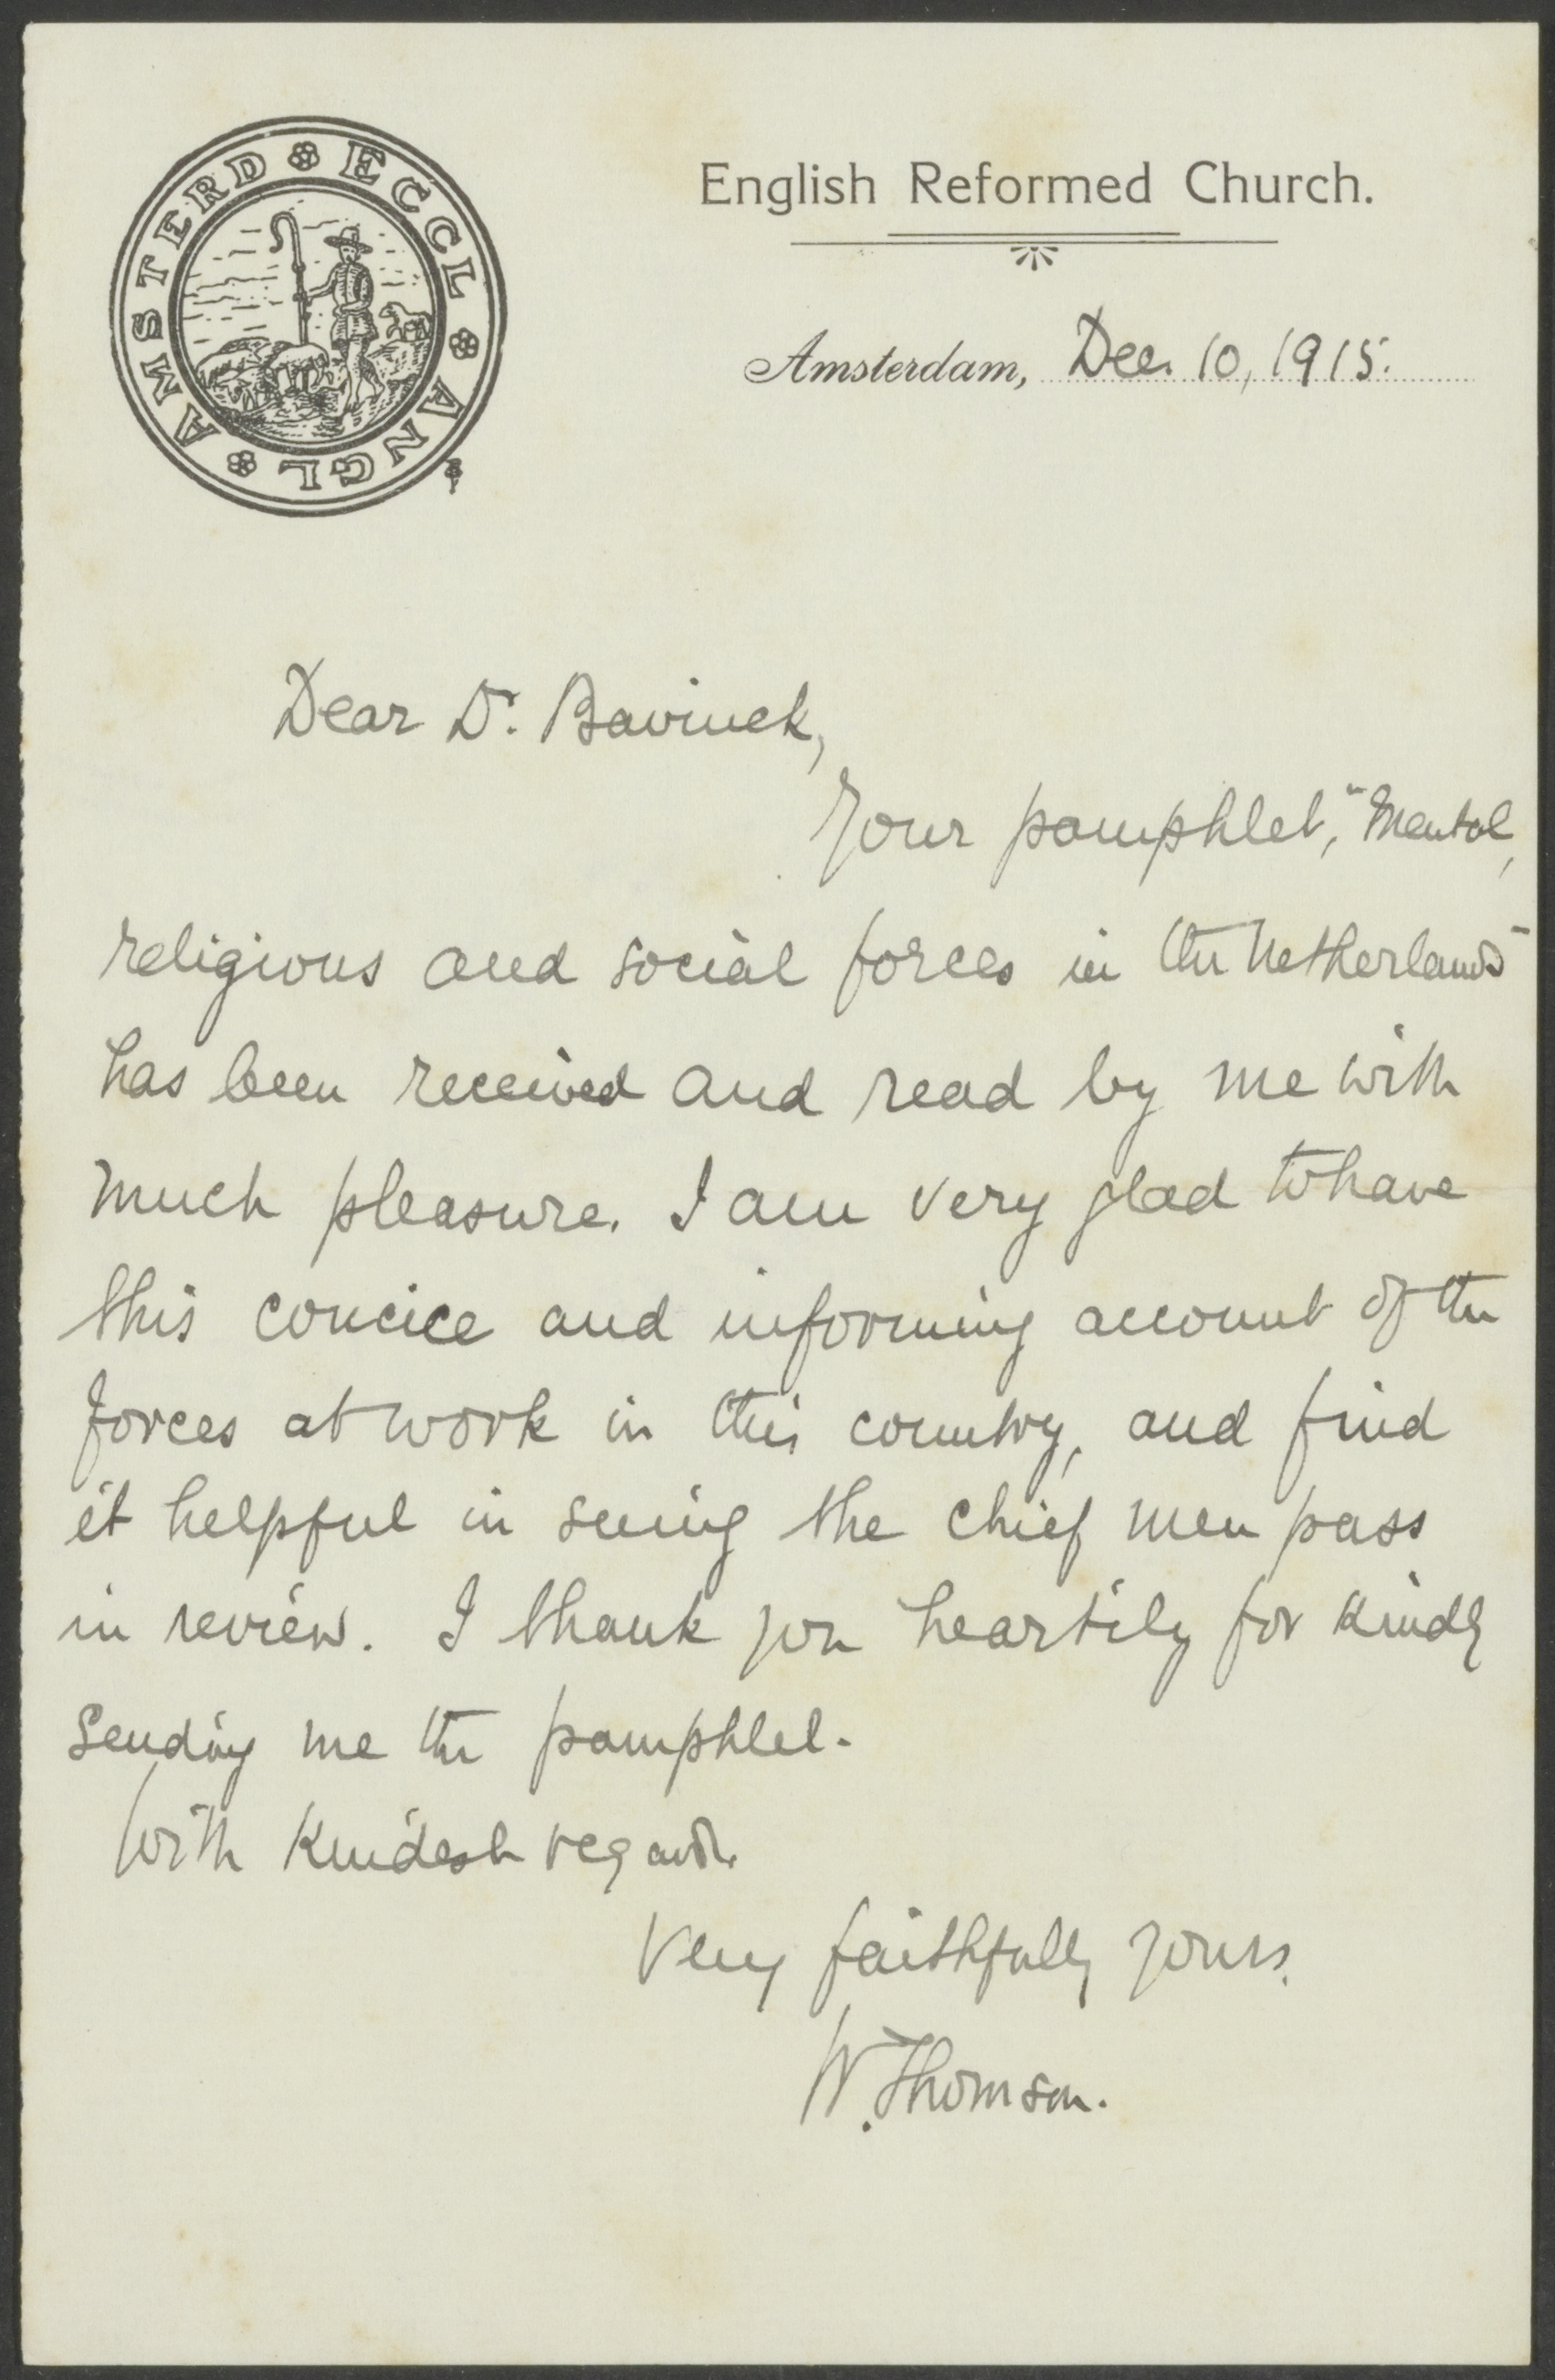 AMSTERD ECCL ANGL
English Reformed Church.
Amsterdam, Dec. 10, 1915.
Dear Dr. Bavinck,
Your pamphlet, "Mental,
religious and social forces in the Netherlands"
has been received and read by me with
much pleasure. I am very glad to have
this concice and informing account of the
forces at work in this country, and find
it helpful in seeing the chief men pass
in review. I thank you heartily for kindly
sending me the pamphlet.
With kindest regards.
Very faithfully yours.
W. Thomson.